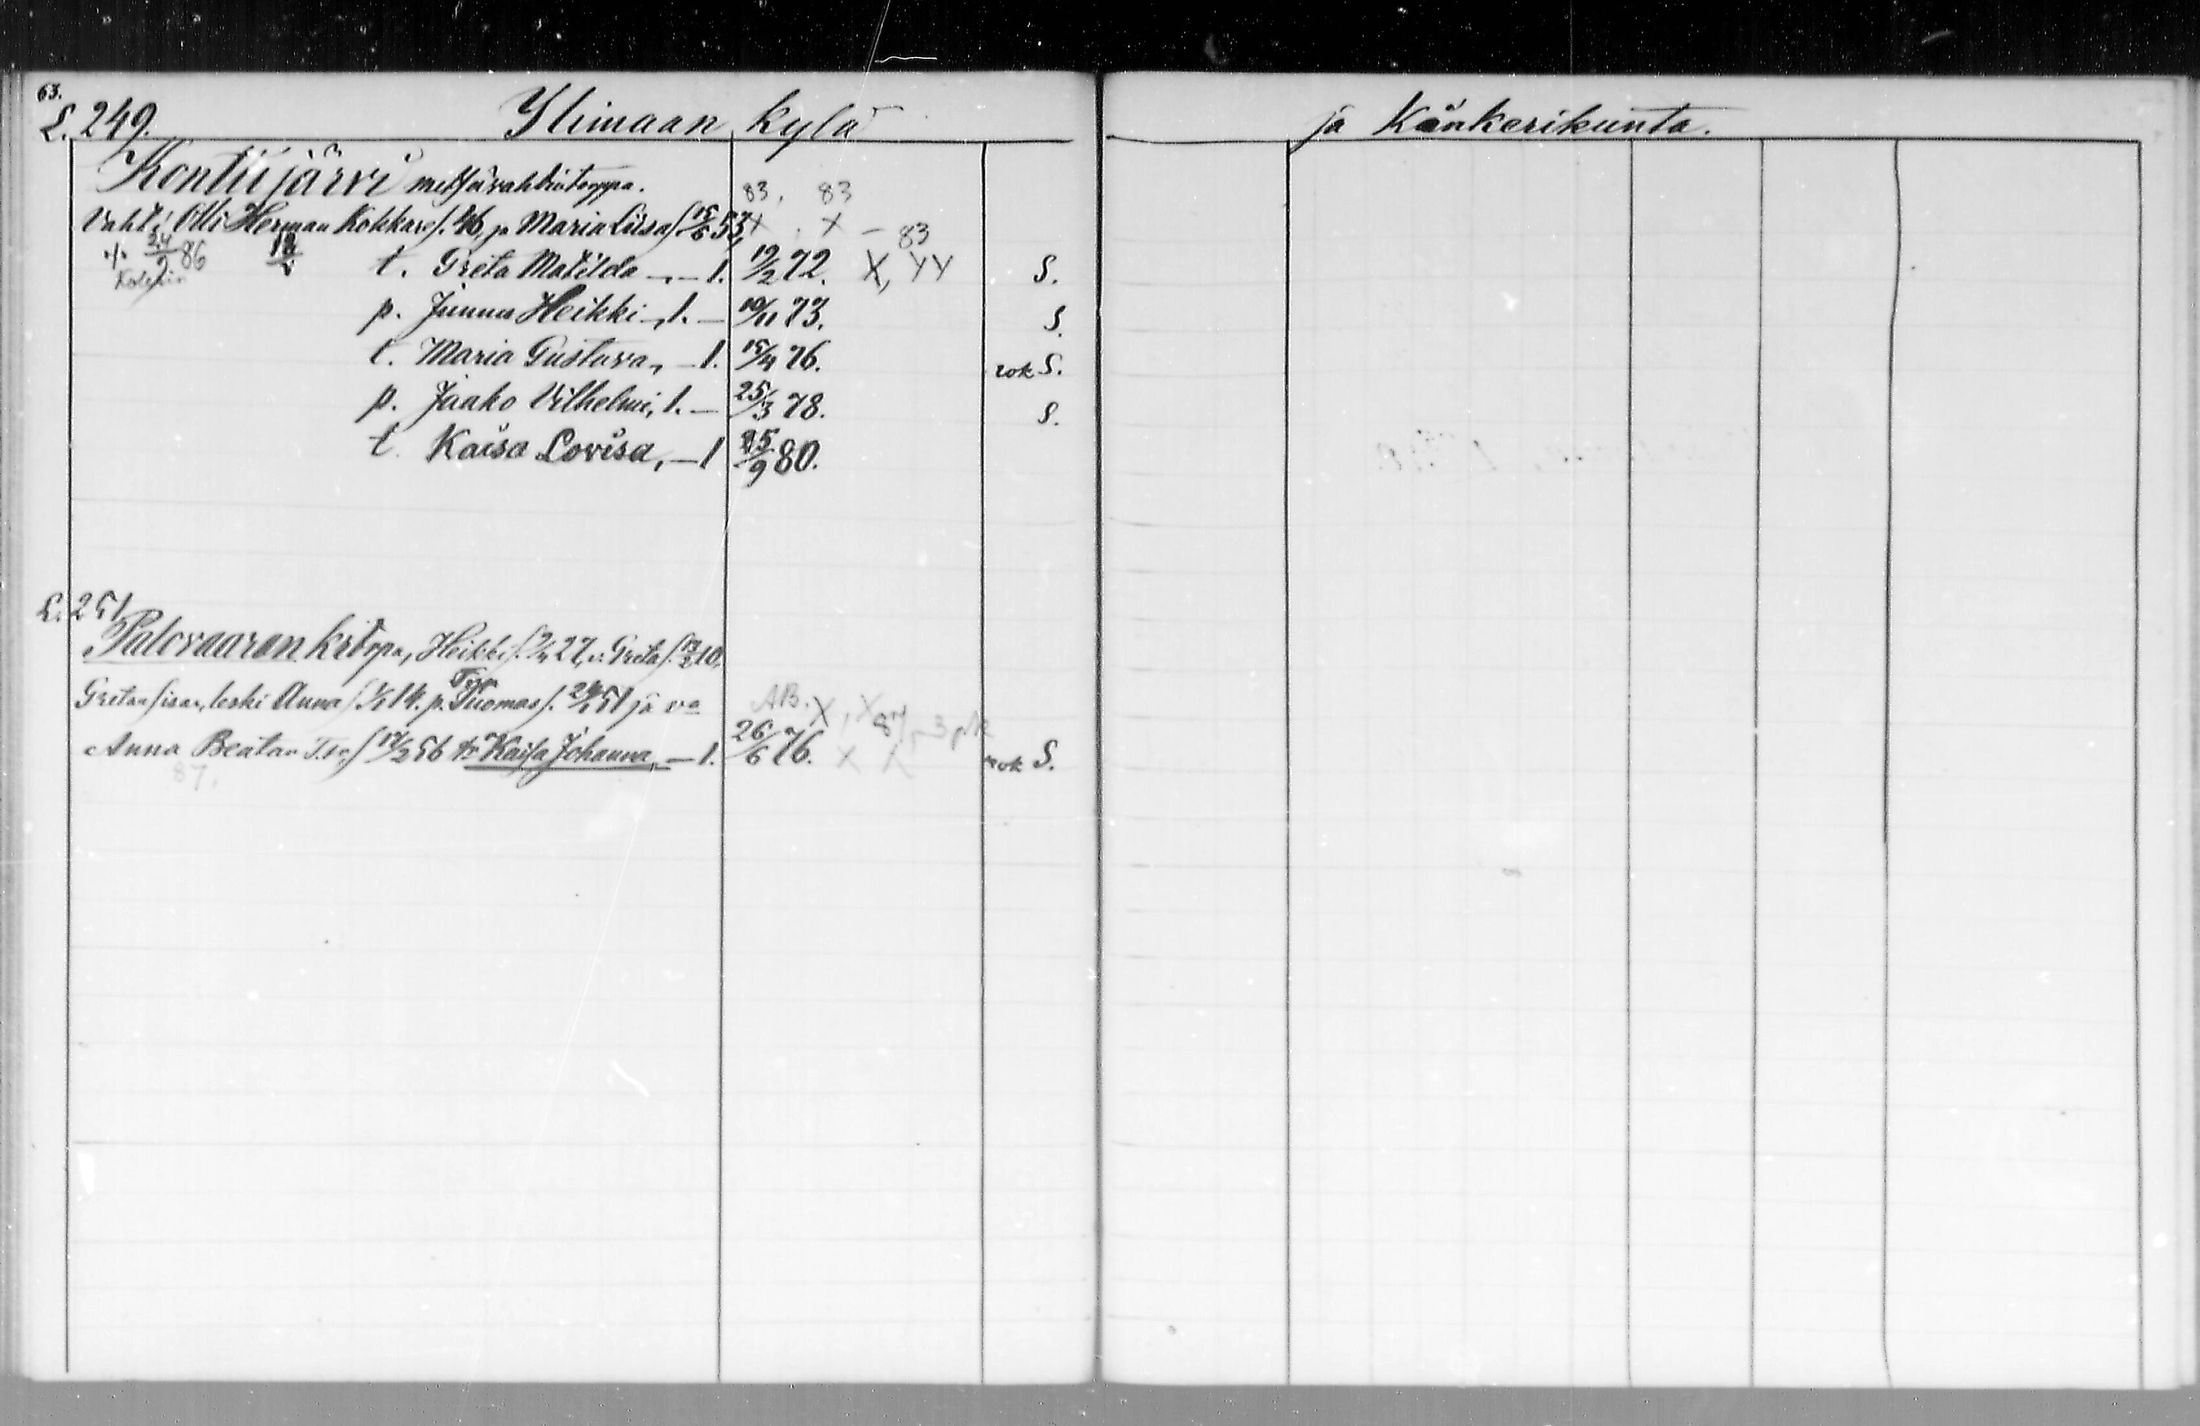 63.
L. 249. Ylimaan kylä ja Känkerikunta.
Kontiijärvi metsävahtintorppa.
83. 83
Vahti Olli Herman Kokkare s. 46, ja Maria Liisa s. 15/6 53, X . X – 83
24/9 86 t. Greta Matilda –„– l. 19/2 72. X, YY S.
p. Junnu Heikki –„ l. – 10/11 73. S.
t. Maria Gustava „ – l. 15/4 76. rok S.
p. Jaako Vilhelmi, l. – 25/3 78. S.
t. Kaisa Lovisa, – l 25/9 80.
L. 251
Palovaaran kr torpa, Heikki s. 27, v. Greta s. 10,
Gretan sisar, leski Anna s. 14. p. Tuomas s. 51 ja va AB. X, X 87,
Anna Beatan T. s. 17/2 56 tr Kaisa Johanna, – l. 26/6 76. X X rok S.
87.